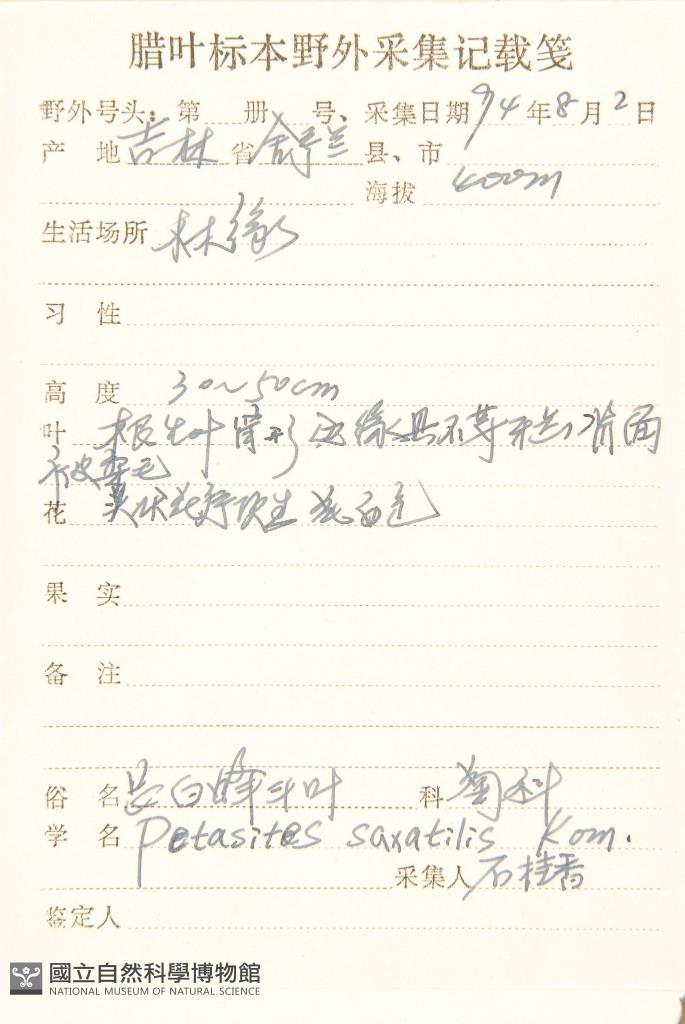 腊叶标本野外采集记载笺
野外号头：第 册 号、采集日期 94年8月2日
产 地 吉林 省 舒兰 县、市
海拔 400m
生活场所 林缘
习 性
高 度 30~50cm
叶 根生叶肾形 边缘具不等 背面
被柔毛
花 花序顶生 花白色
果 实
备 注
俗 名 长白蜂斗叶 科 菊科
学 名 Petasites saxatilis Kom.
采集人 石桂香
鉴定人
國立自然科學博物館
NATIONAL MUSEUM OF NATURAL SCIENCE